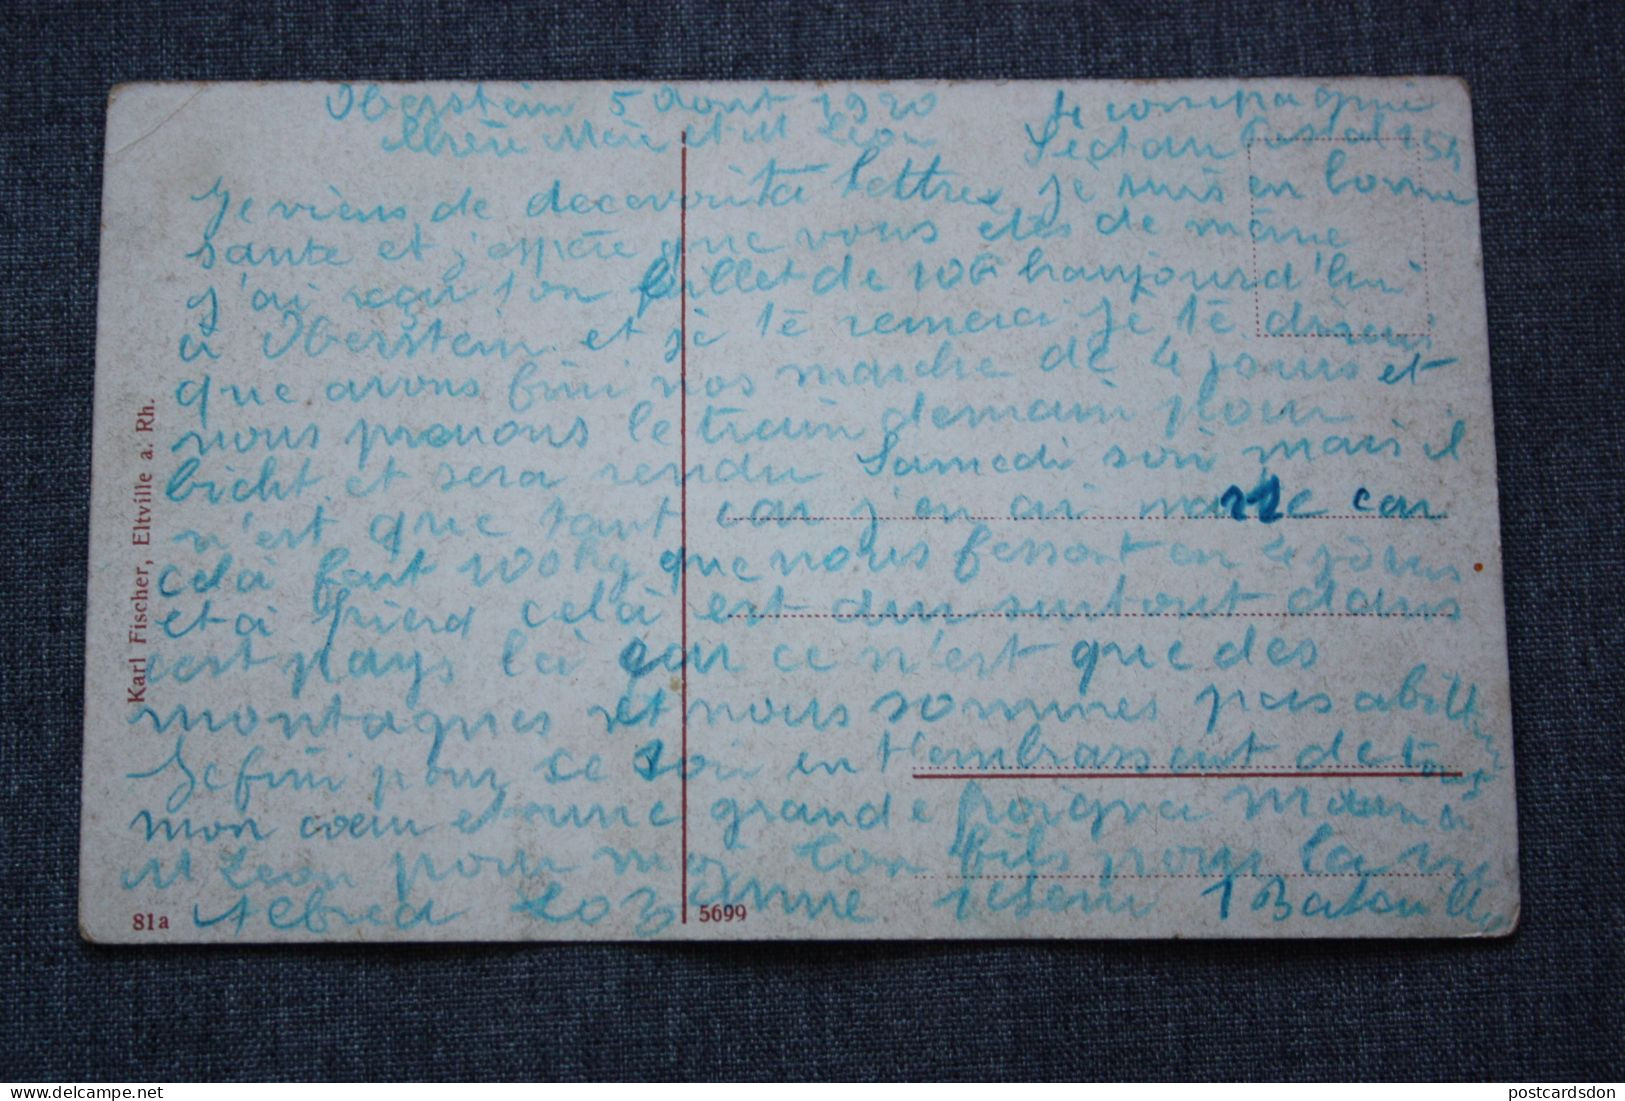 Oberstein 5 Aout 1920 4 compagnie
Chrère Mère et M Léon Secteur Postal 154
Je viens de decevoir ta lettres je suis en bonne
sante et j'espère que vous etes de même
j'ai reçu ton billet de 10F aujourd'hui
a Oberstein et je te remerci je te dirai
que avons fini nos marche de 4 jours et
nous prenons le train demain pour
bicht et sera rendu Samedi soir mais il
n'est que tant car j'en ai marre car
celà fait 100 kg que nous fessont en 4 jours
et à pied celà est dur surtout dans
cest pays là car ce n'est que des
montagnes et nous sommes pas abill
Je fini pour ce soir en t'embrassent de tous
mon cœur et une grande poigné main à
M Leon pour moi ton fils pour la vie
Alfred 1 Bataillon
Karl Fischer, Eltville a. Rh.
81a
5699
postcardsdon